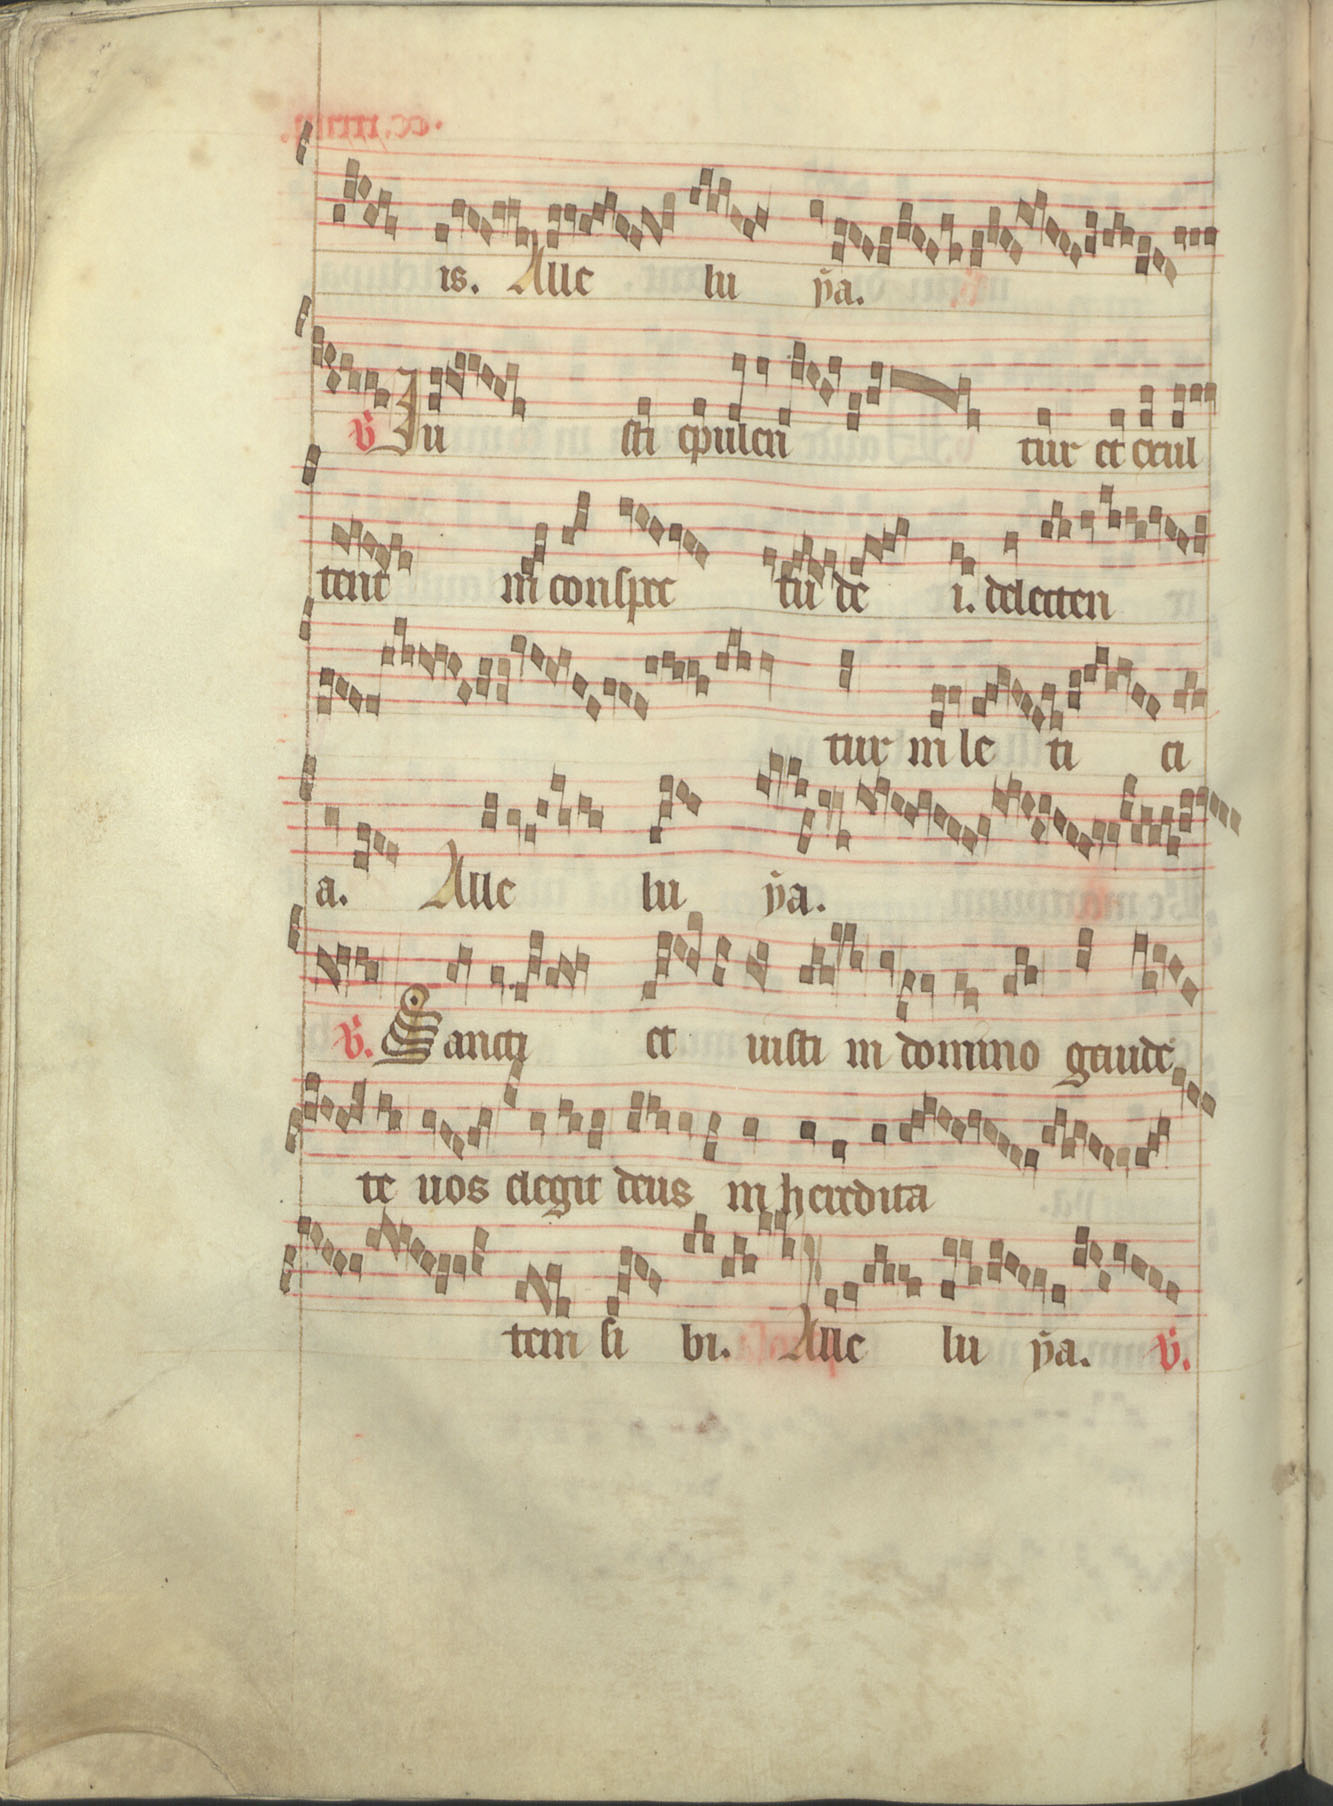 is. Alle lu ẏa.
℣ Iu sti epulen tur et exul
tent in conspec tu de i. delecten
tur in le ti ci
a. Alle lu ẏa.
℣. Sancti et iusti in domino gaude
te uos elegit deus in heredita
tem si bi. Alle lu ẏa. ℣.